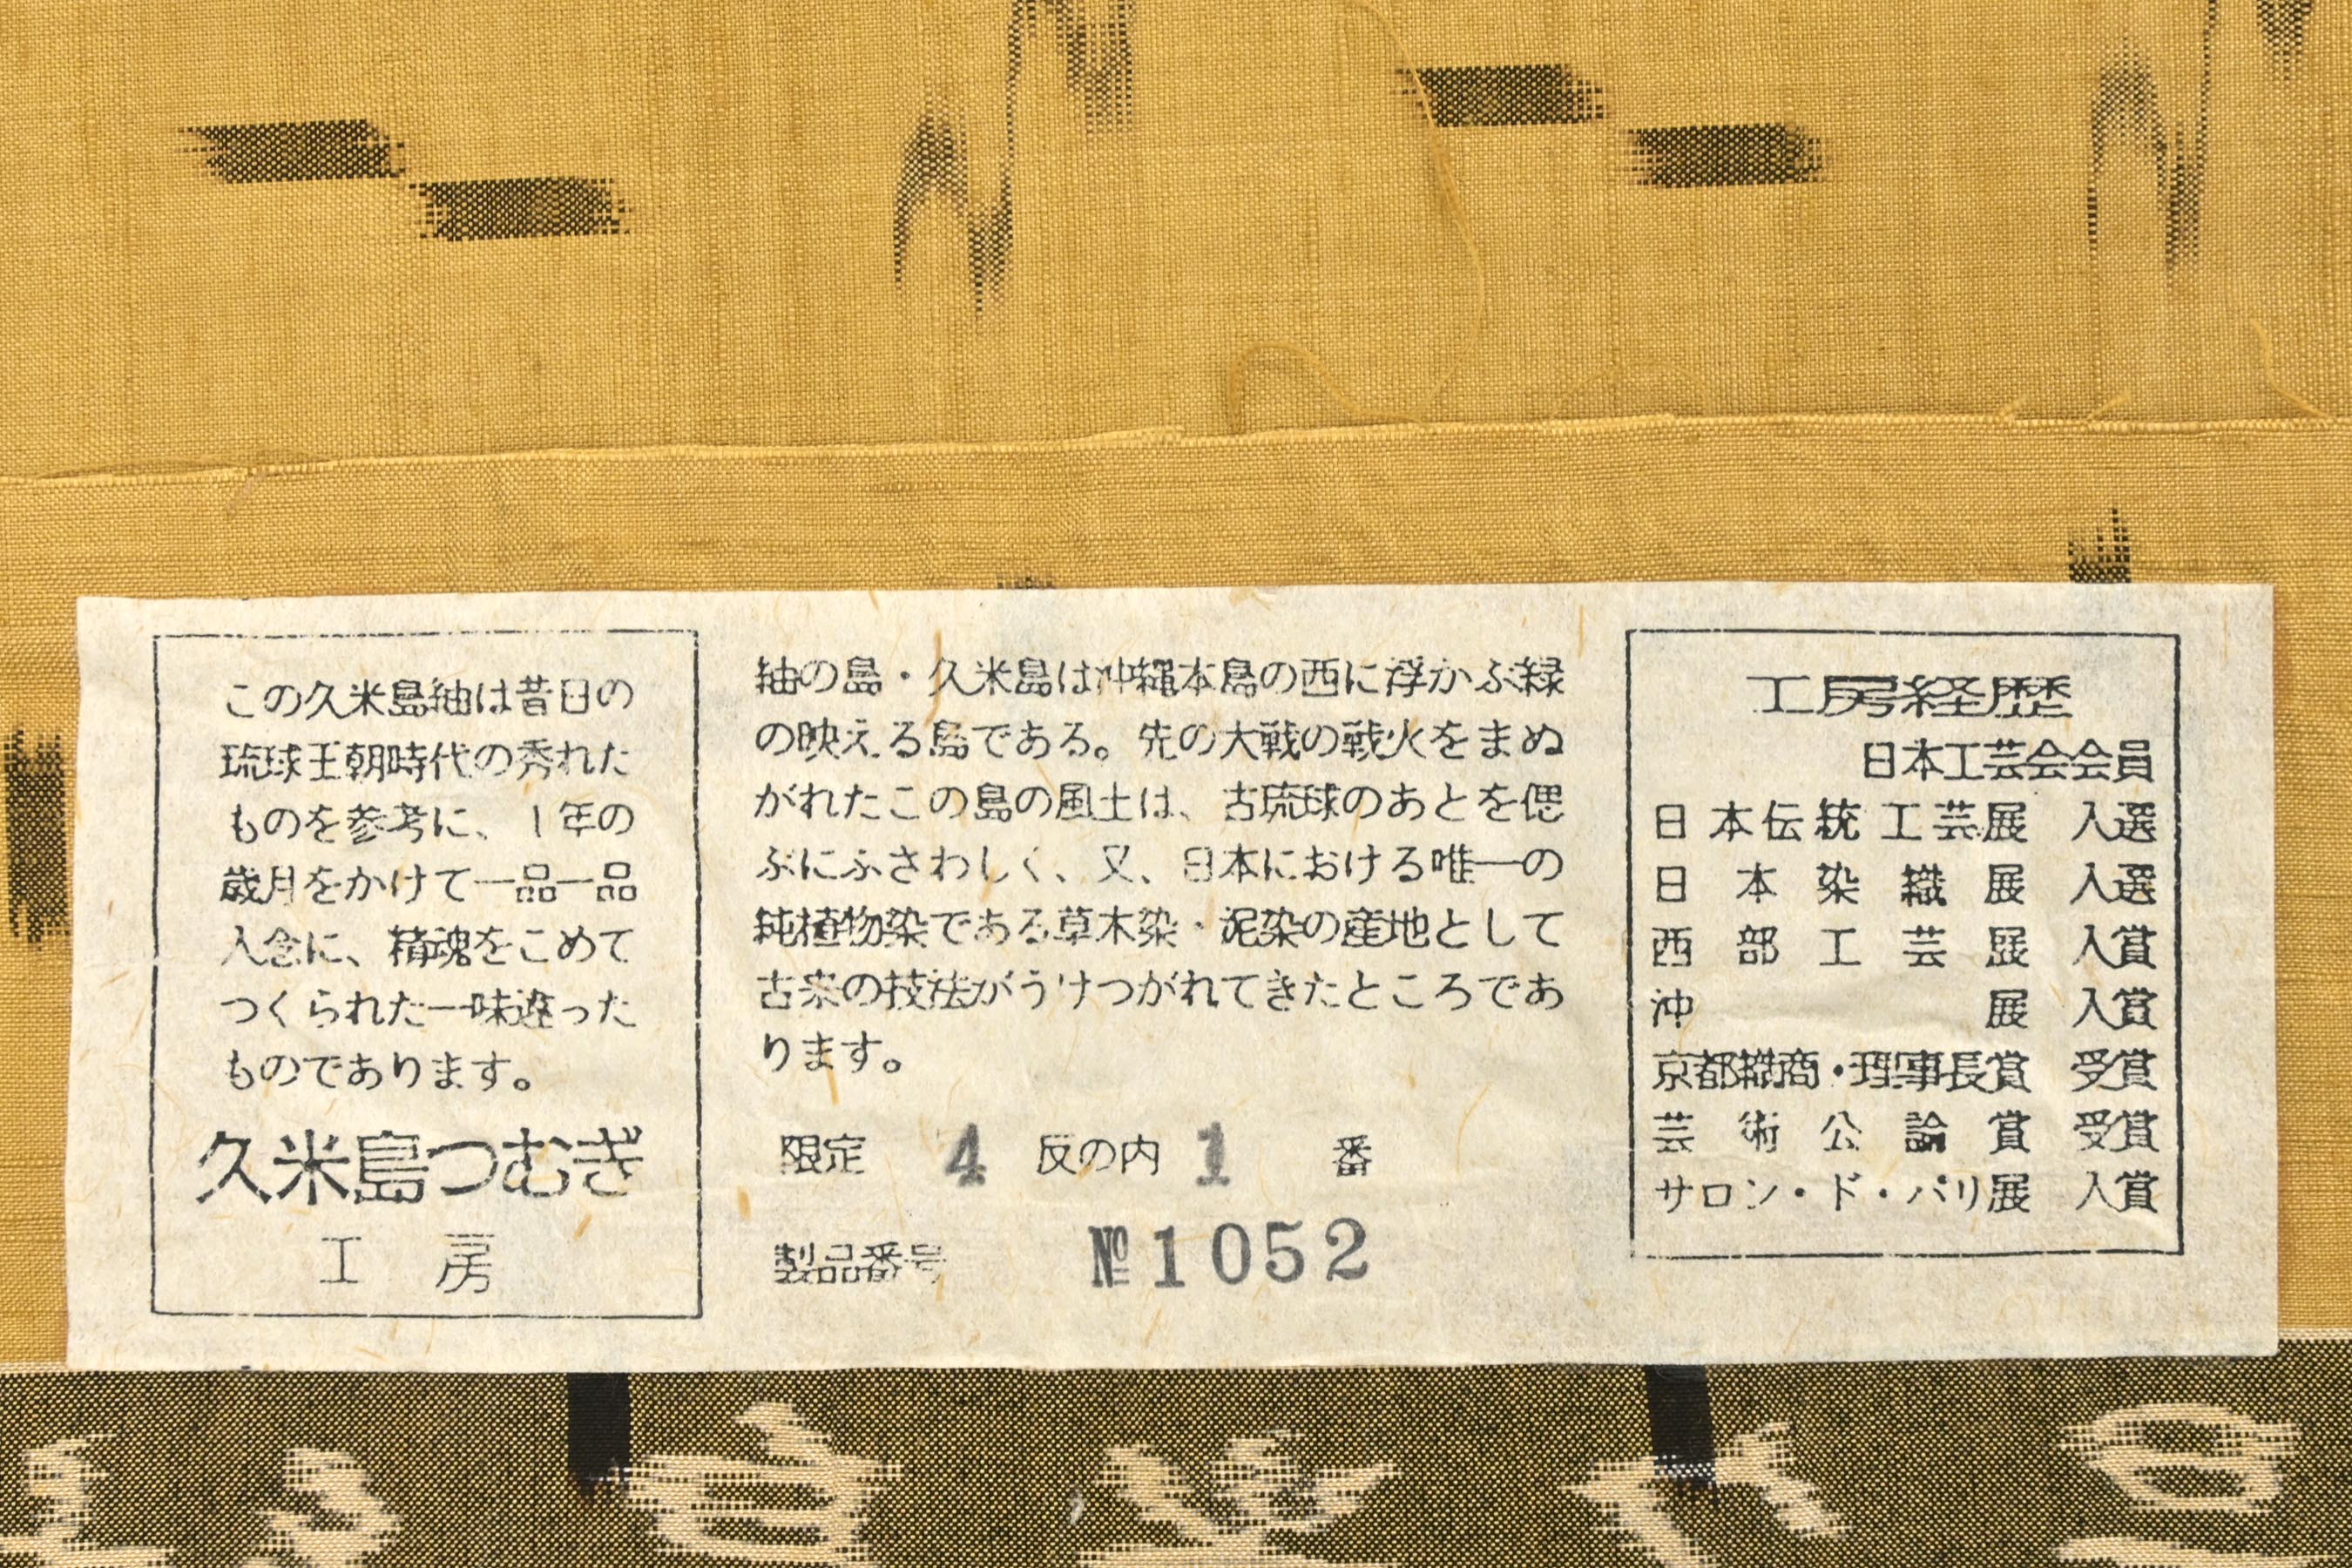 この久米島紬は昔日の
琉球王朝時代の秀れた
ものを参考に、1年の
歳月をかけて一品一品
入念に、精魂をこめて
つくられた一味違った
ものであります。
久米島つむぎ
工房
紬の島・久米島は沖縄本島の西に浮かぶ緑
の映える島である。先の大戦の戦火をまぬ
がれたこの島の風土は、古琉球のあとを偲
ぶにふさわしく、又、日本における唯一の
純植物染である草木染・泥染の産地として
古来の技法がうけつがれてきたところであ
ります。
限定 4 反の内 1 番
製品番号 №1052
工房経歴
日本工芸会会員
日本伝統工芸展 入選
日本染織展 入選
西部工芸展 入賞
沖展 入賞
京都織商・理事長賞 受賞
芸術公論賞 受賞
サロン・ド・パリ展 入賞